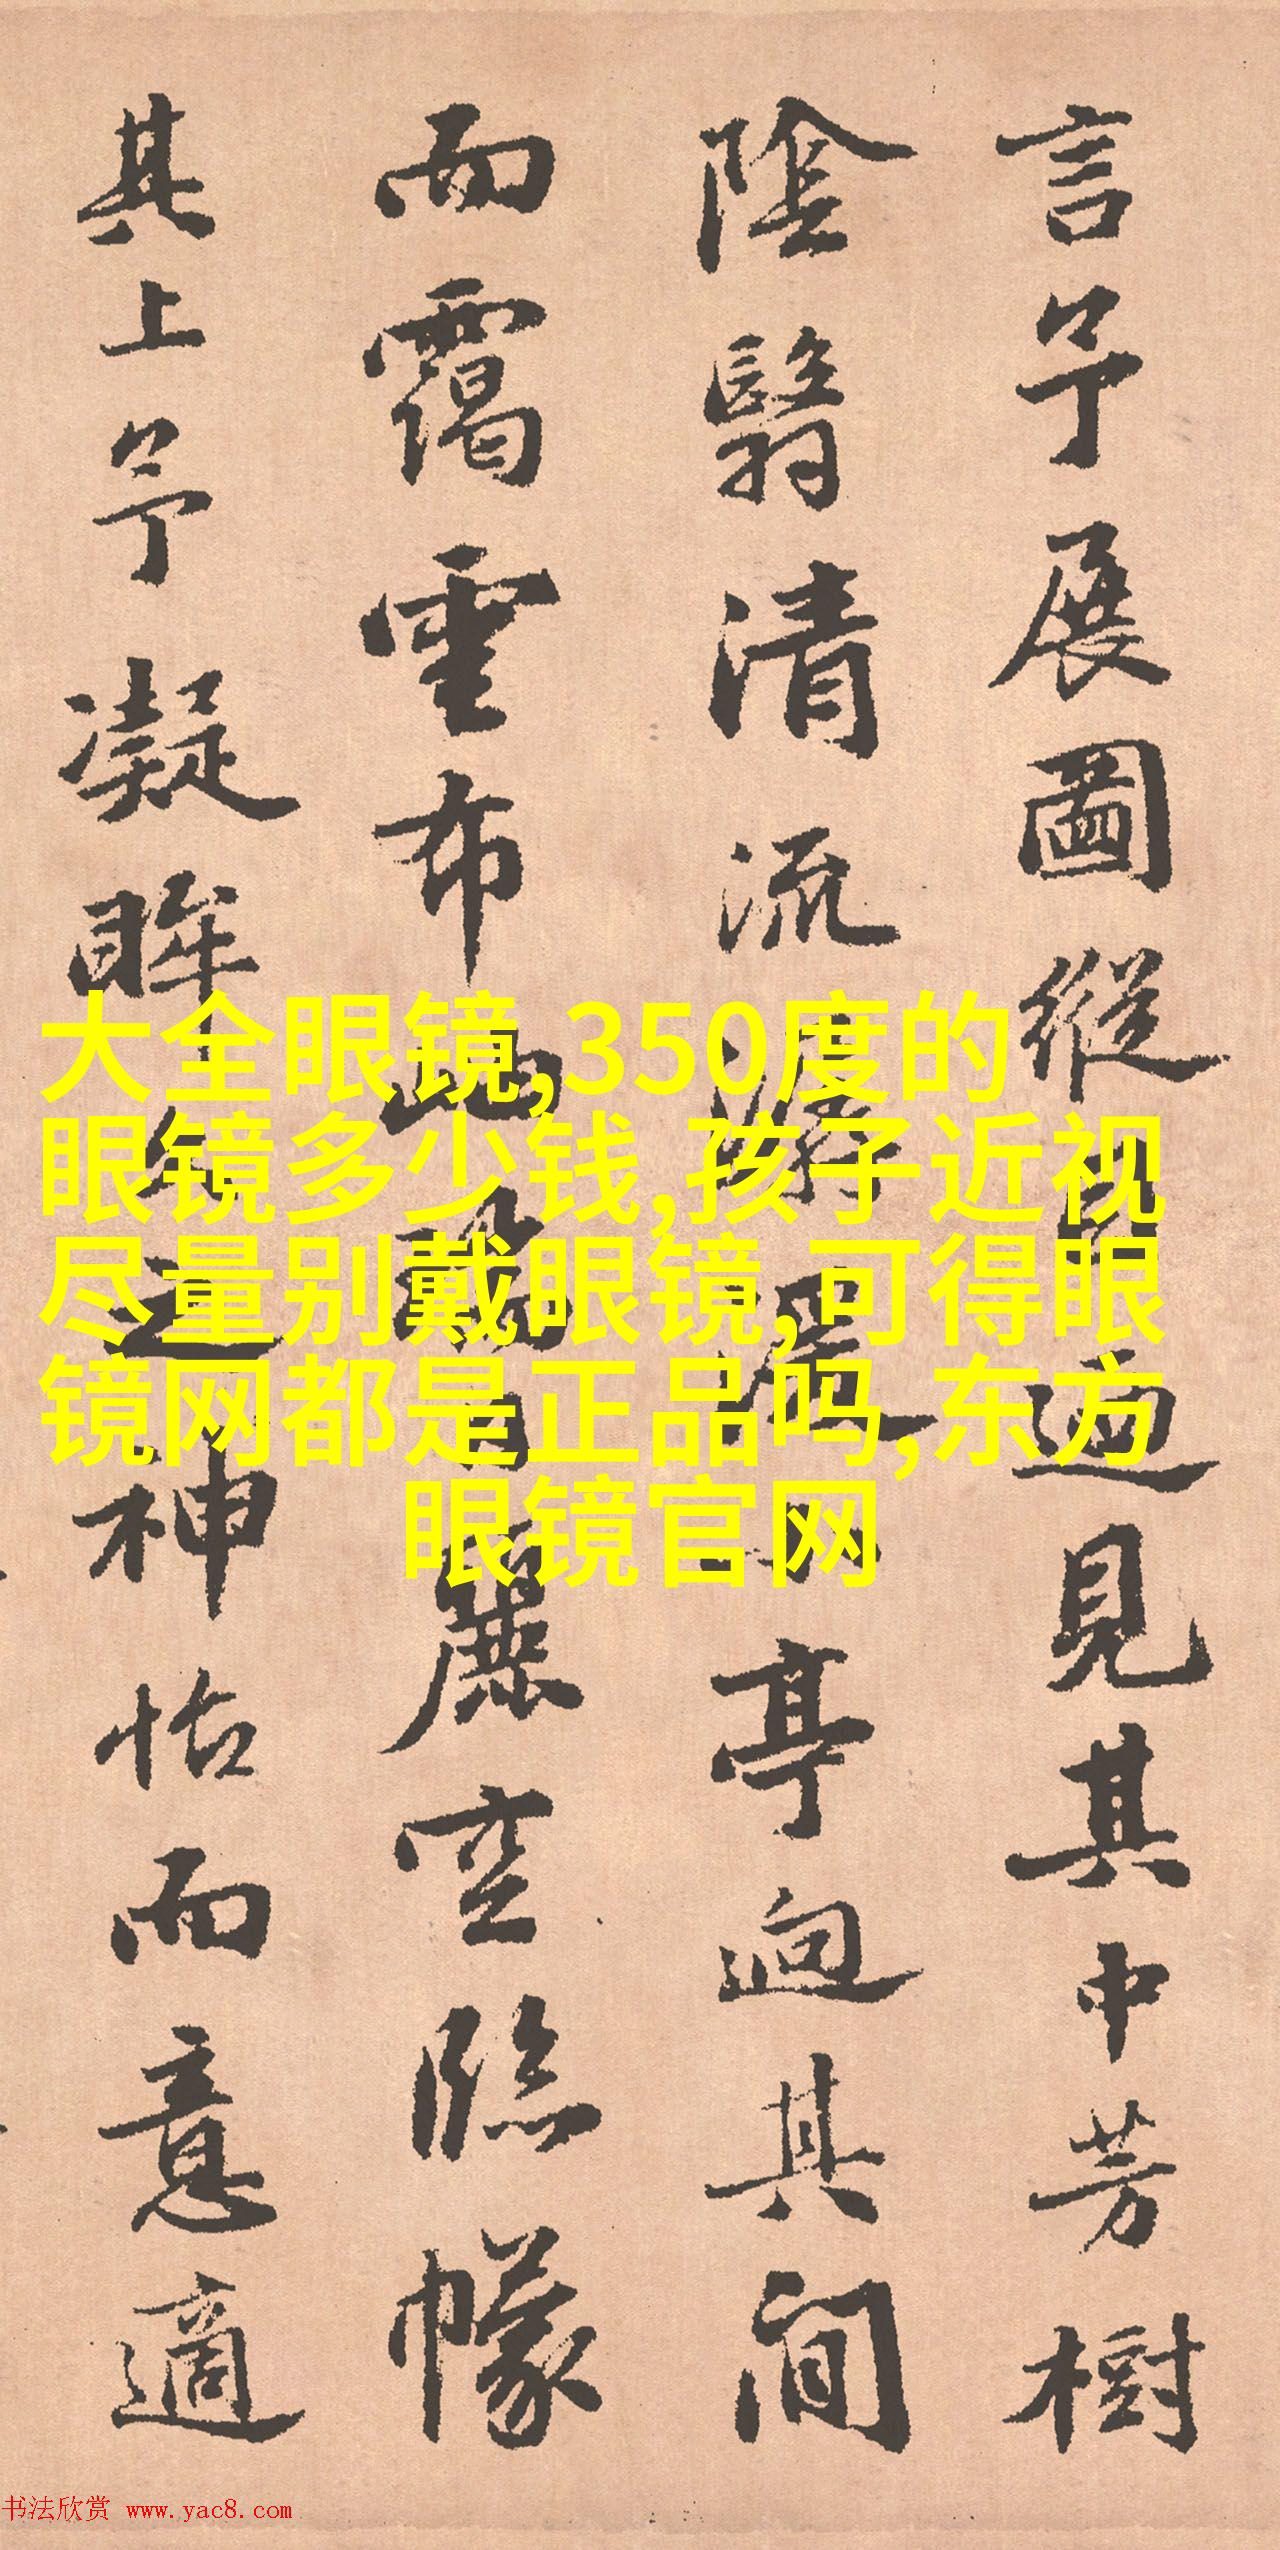 言予展圖縱目迥見其中芳樹
陰翳清流潺湲亭逈其間
而靄雲布麗空臨幪
其上予凝眸久之神怡而意適
大全眼镜,350度的
眼镜多少钱,孩子近视
尽量别戴眼镜,可得眼
镜网都是正品吗,东方
眼镜官网
书法欣赏 www.yac8.com